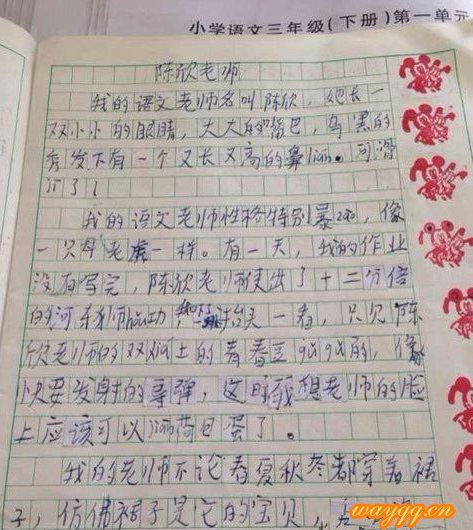 小学语文三年级(下册)第一单元
陈欣老师
我的语文老师名叫陈欣，她长一
双小小的眼睛，大大的嘴巴，乌黑的
秀发下有一个又长又高的鼻liang。可滑
ji了！
我的语文老师性格特别暴zao，像
一只母老虎一样。有一天，我的作业
没有写完，陈欣老师使出了十二分倍
的河东狮hou功，我抬头一看，只见陈
欣老师的双颊上的青春豆 的，像
以要发射的导弹，这时我想老师的脸
上应该可以煎荷包蛋了。
我的老师不论春夏秋冬都穿着裙
子，仿佛裙子是它的宝贝，
waygq.cn